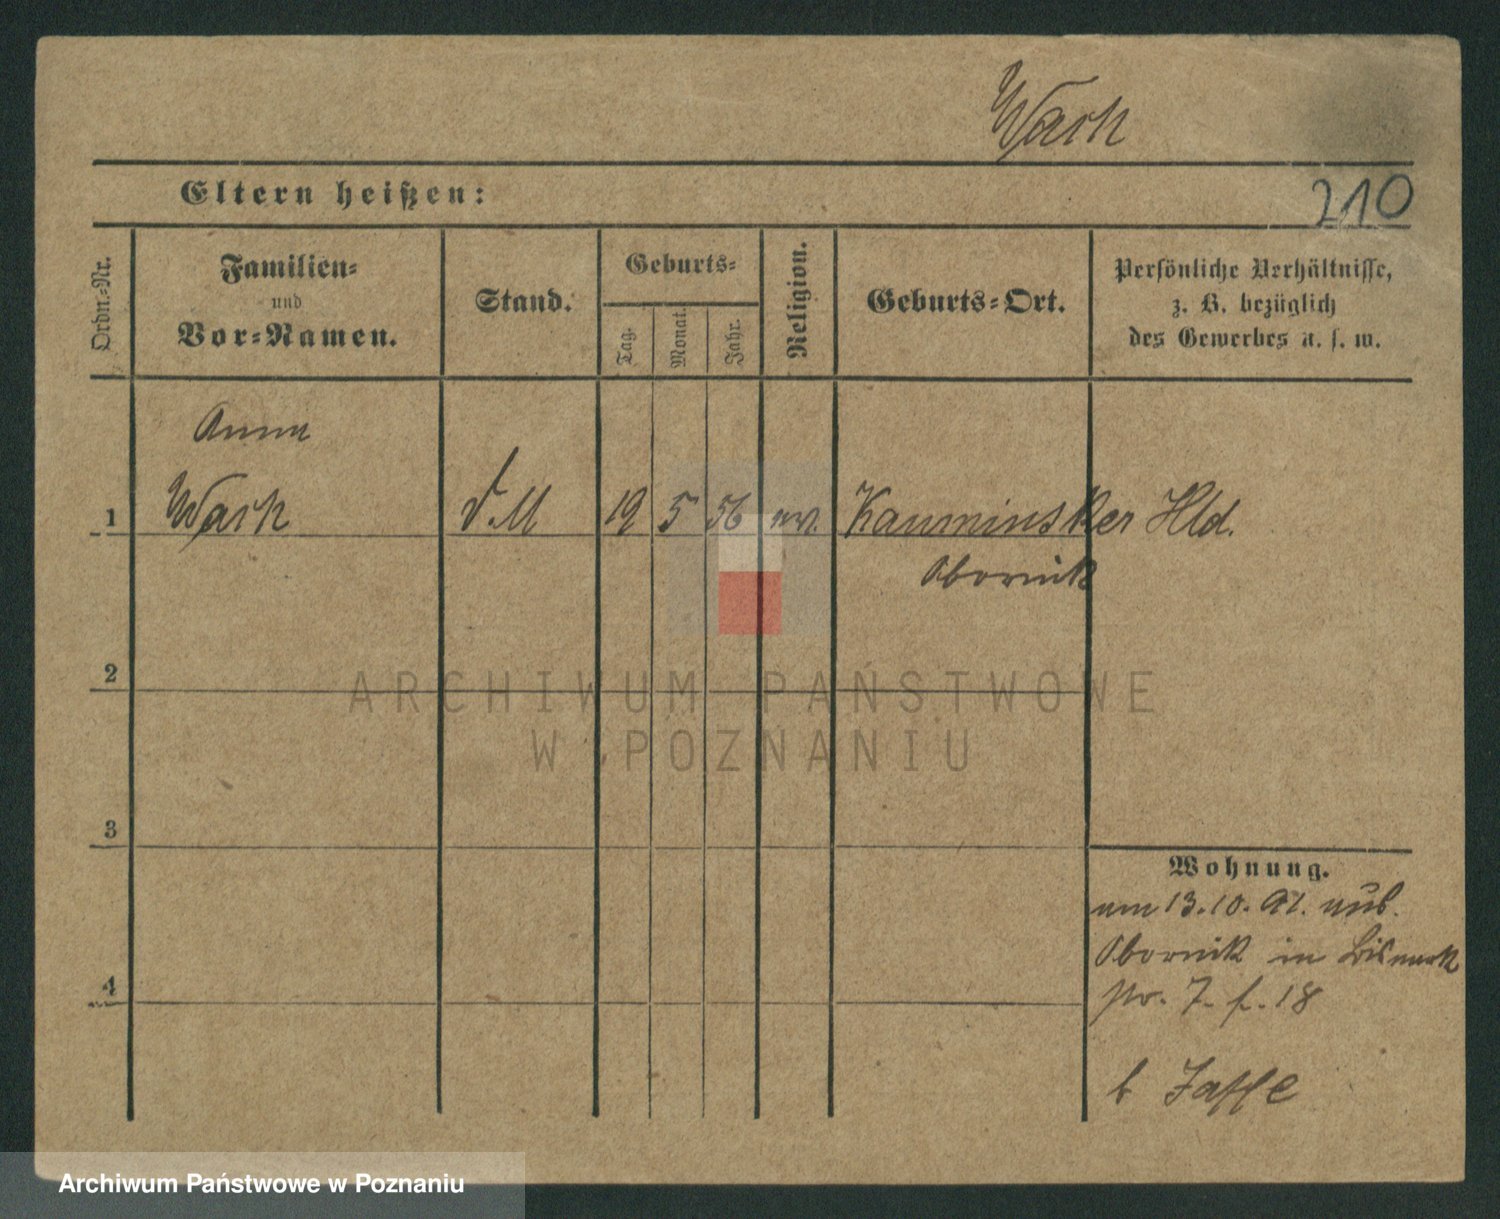 Wach
Eltern heißen:
210
Ordn.-Nr.
Familien-
und
Vor-Namen.
Stand.
Geburts-
Tag.
Monat.
Jahr.
Religion.
Geburts-Ort.
Persönliche Verhältnisse,
z. B. bezüglich
des Gewerbes u. s. w.
Anna
1 Wach d. M 19 5 56 ev. Kauminsker Hld.
Obornik
2
3
4
Wohnung.
am 13.10.91. aus
Obornik in Bismark
str. 7. f. 18
b Jaffe
ARCHIWUM PAŃSTWOWE
W POZNANIU
Archiwum Państwowe w Poznaniu